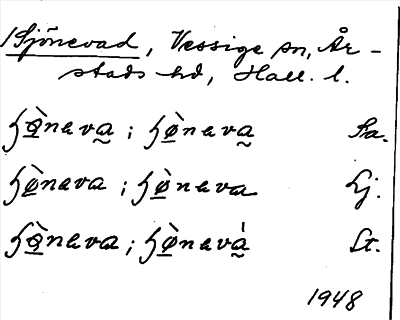 /Sjönevad, Vessige sn, År-
stads hd, Hall. l.
ʃø̠̀nava̰ ; ʃø̠̀nava̰ Sa.
ʃø̠̀nava ; ʃø̠̀nava Lj.
ʃø̠̀nava ; ʃø̠̀navà̰ St.
1948